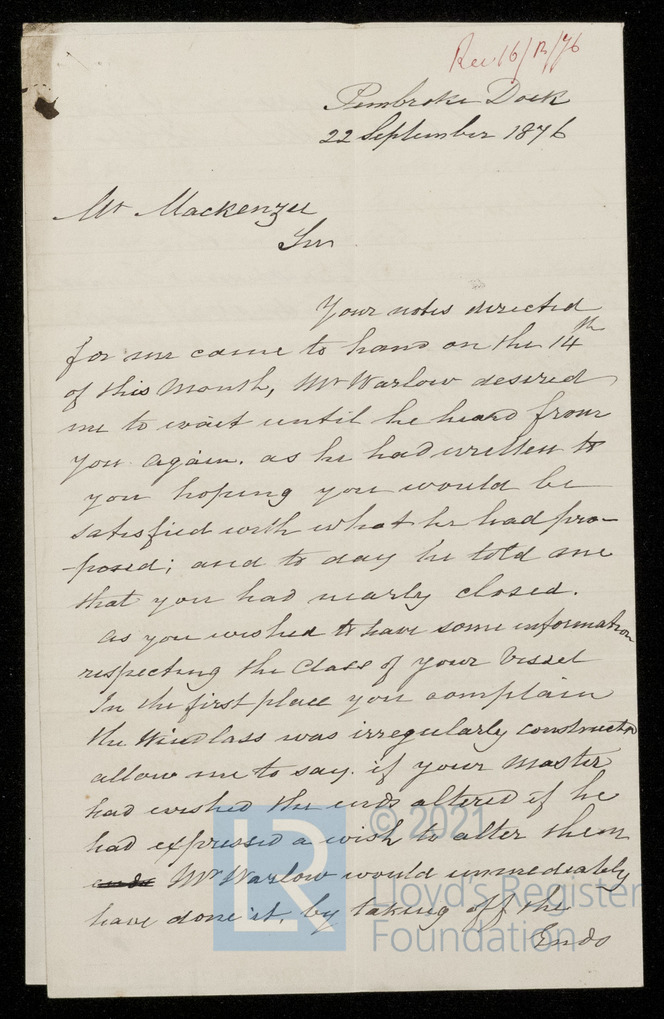 Rec 16/12/76
Pembroke Dock
22 September 1876
Mr Mackenzie
Sir
Your notes directed
for me came to hand on the 14th
of this Month, Mr Warlow desired
me to wait until he heard from
you again. as he had written to
you hoping you would be
satisfied with what he had pro-
-posed; and to day he told me
that you had nearly closed.
As you wished to have some information
respecting the Class of your Vessel
In the first place you complain
the Windlass was irregularly constructed
allow me to say. if your Master
had wished the ends altered if he
had expressed a wish to alter them
Mr Warlow would immediately
have done it, by taking off the
Ends
LR
© 2021
Lloyd's Register
Foundation